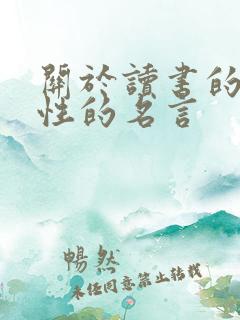 關於讀書的
性的名言
暢然
未經同意禁止轉載